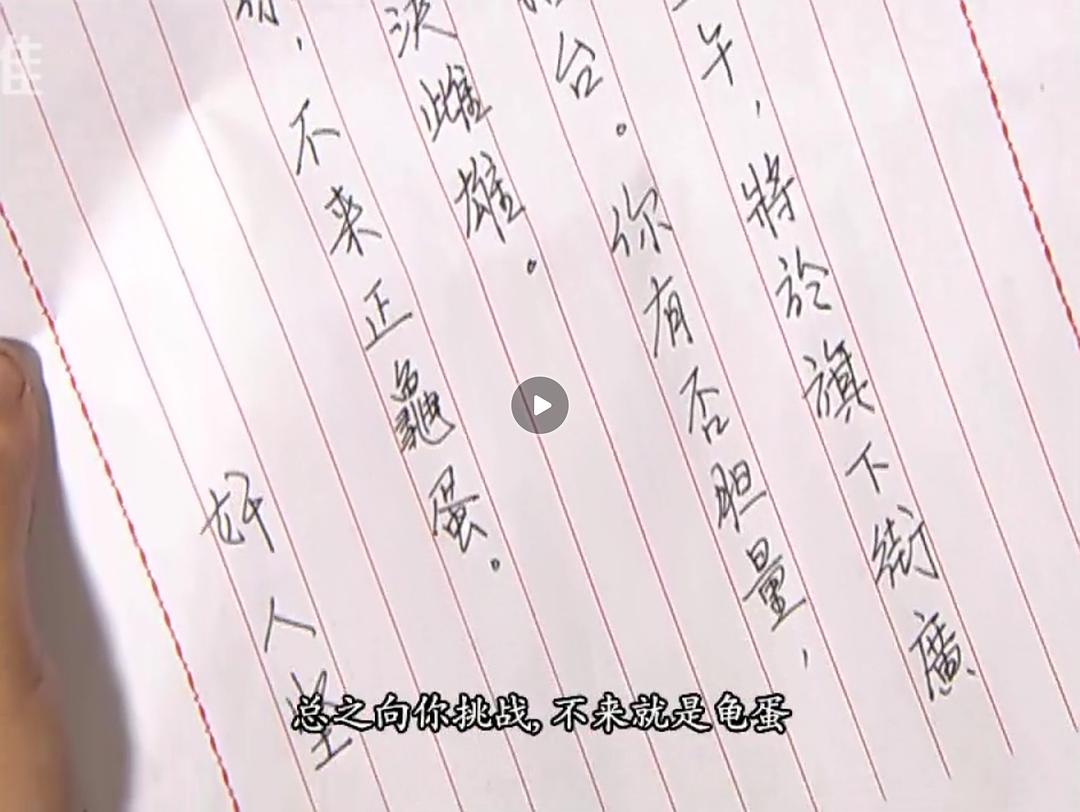 午，將於旗下街廣
台。你有否胆量，
決雌雄。
，不来正龜蛋。
人
总之向你挑战, 不来就是龟蛋